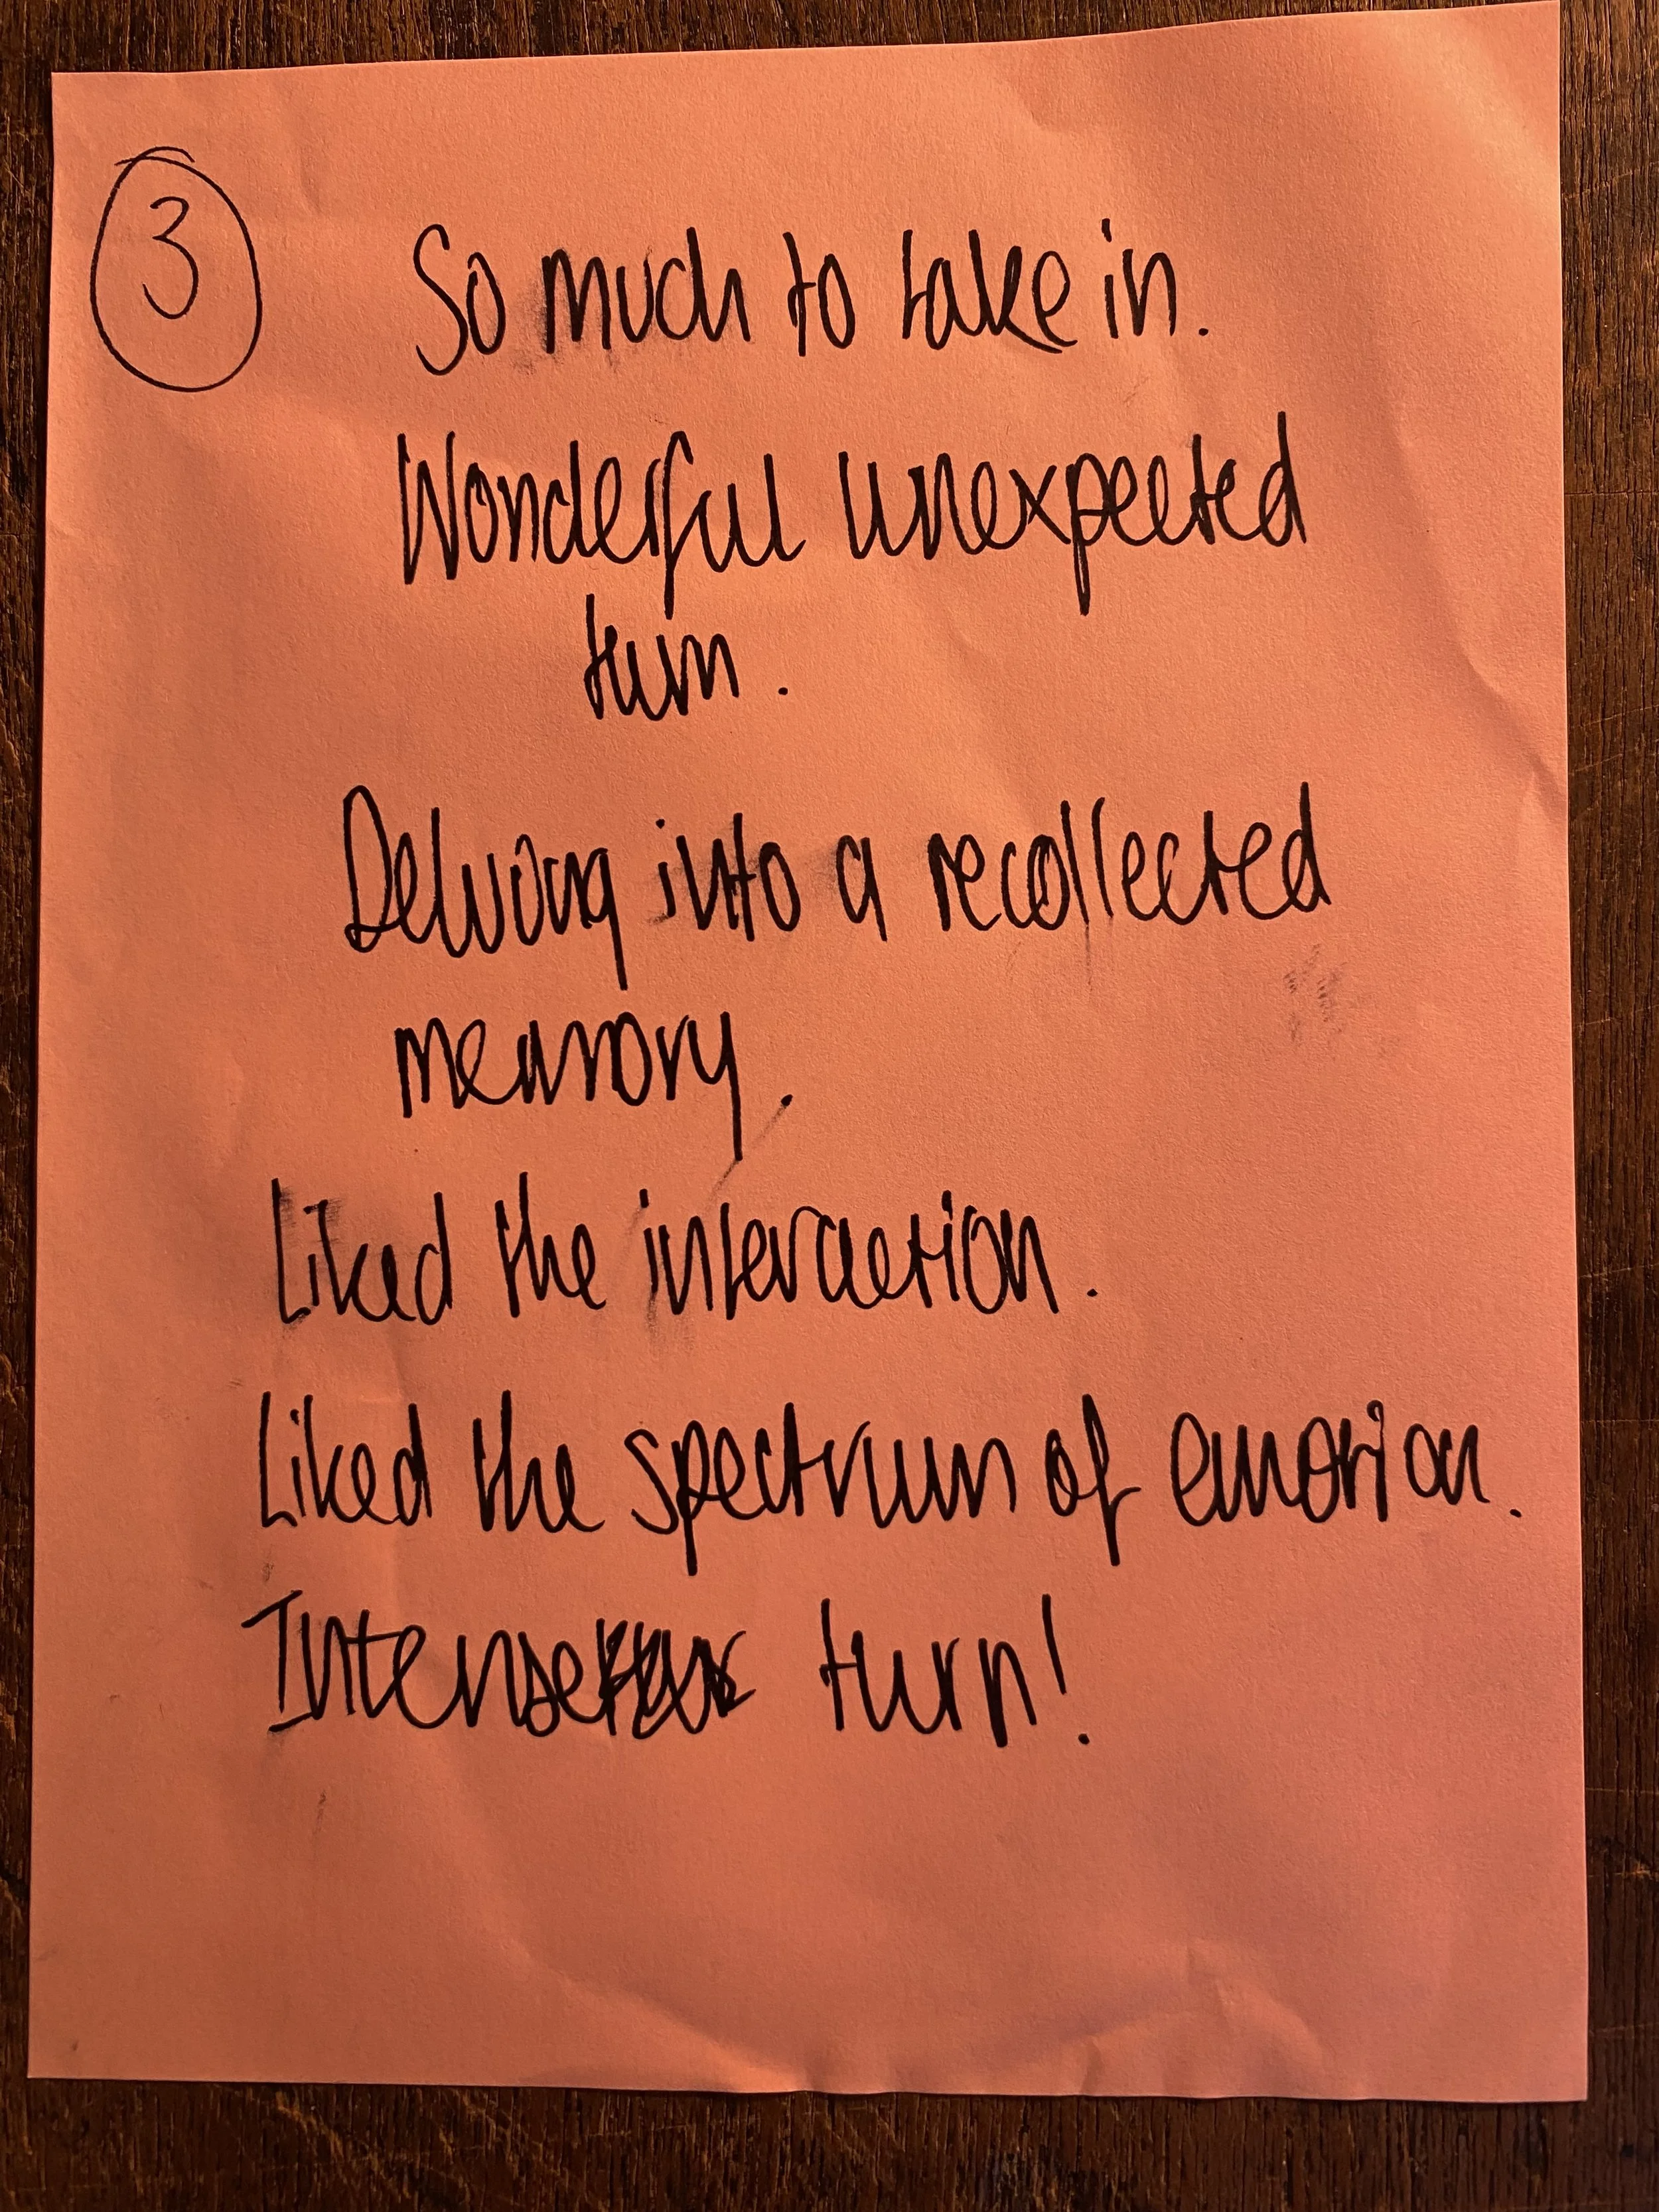 3
So much to take in.
Wonderful unexpected
turn.
Delving into a recollected
memory.
Liked the interaction.
Liked the spectrum of emotion.
Intense turn!